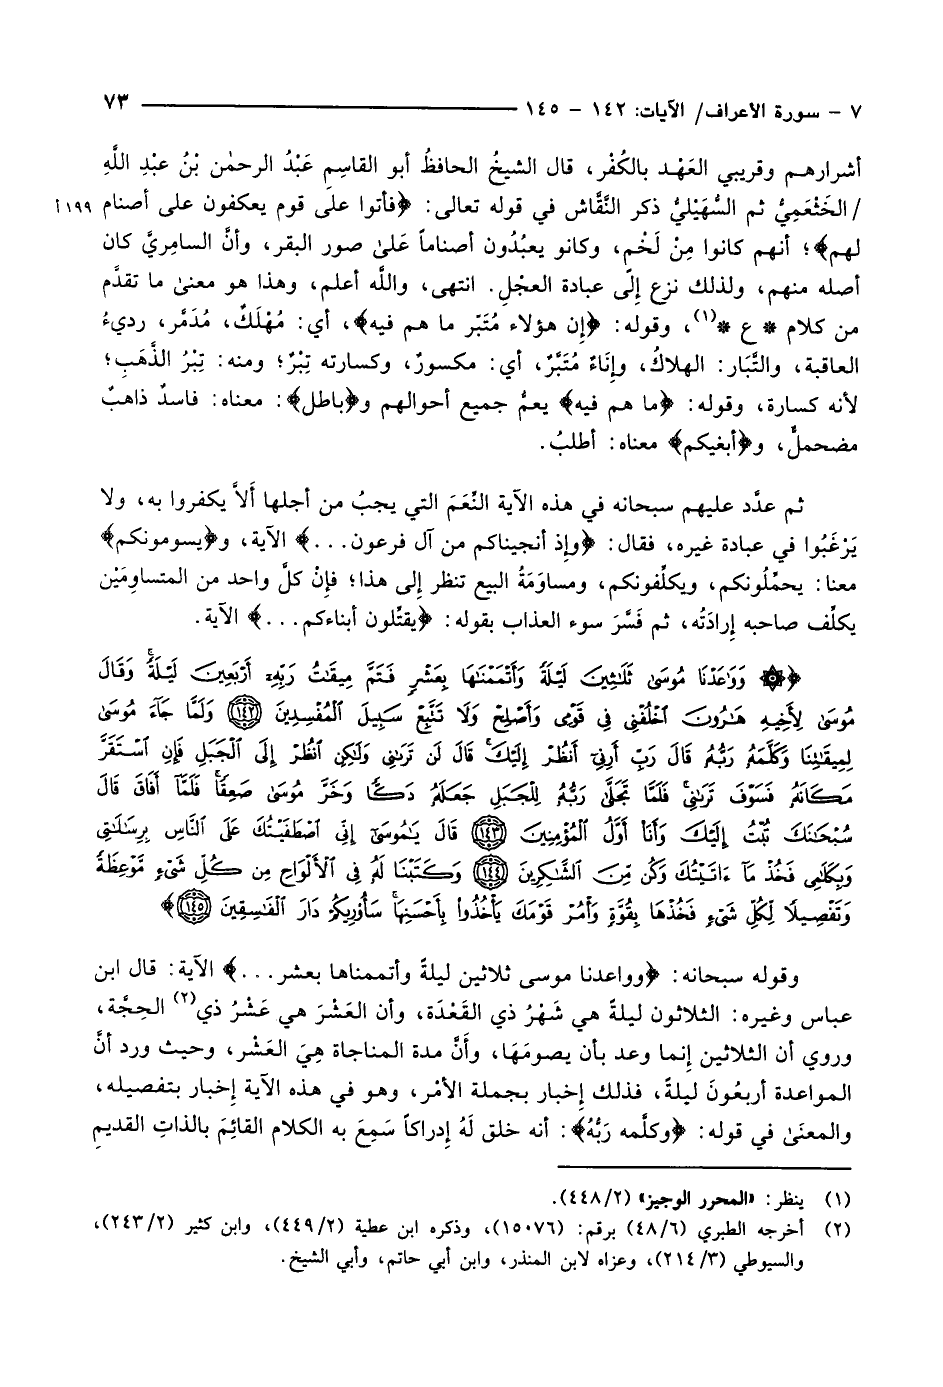 ٧ – سورة الأعراف/ الآيات: ١٤٢ – ١٤٥ ٧٣
أشرارهم وقريبي العَهْد بالكُفْر، قال الشيخُ الحافظُ أبو القاسِمِ عَبْدُ الرحمٰن بْنُ عبْدِ اللَّهِ
/ الخَثْعَمِيُّ ثم السُّهَيْلِيُّ ذكر النَّقَّاش في قوله تعالى: ﴿فأتوا على قوم يعكفون على أصنام ١٩٩ أ
لهم﴾؛ أنهم كانوا مِنْ لَخْم، وكانو يعبُدُون أصناماً عَلَىٰ صور البقر، وأنَّ السامِرِيَّ كان
أصله منهم، ولذلك نزع إِلَى عبادة العجْلِ. انتهى، واللَّه أعلم، وهذا هو معنىٰ ما تقدَّم
من كلام * ع *(١)، وقوله: ﴿إن هؤلاء مُتَبّر ما هم فيه﴾، أي: مُهْلَكٌ، مُدَمَّر، رديءُ
العاقبة، والتَّبَار: الهلاكُ، وإِنَاءٌ مُتَبَّرٌ، أي: مكسورٌ، وكسارته تِبْرٌ؛ ومنه: تِبْرُ الذَّهَبِ؛
لأنه كسارة، وقوله: ﴿ما هم فيه﴾ يعمُّ جميع أحوالهم و﴿باطل﴾: معناه: فاسدٌ ذاهبٌ
مضحملٌّ، و﴿أبغيكم﴾ معناه: أطلبُ.
ثم عدَّد عليهم سبحانه في هذه الآية النِّعَمَ التي يجبُ من أجلها أَلاَّ يكفروا به، ولا
يَرْغَبُوا في عبادة غيره، فقال: ﴿وإذ أنجيناكم من آل فرعون...﴾ الآية، و﴿يسومونكم﴾
معنا: يحمِّلُونكم، ويكلِّفونكم، ومساوَمَةُ البيع تنظر إلى هذا؛ فإنْ كلَّ واحد من المتساومَيْن
يكلِّف صاحبه إِرادَتُه، ثم فَسَّرَ سوء العذاب بقوله: ﴿يقتِّلون أبناءكم...﴾ الآية.
﴿۞ وَوَاعَدْنَا مُوسَىٰ ثَلَاثِينَ لَيْلَةً وَأَتْمَمْنَاهَا بِعَشْرٍ فَتَمَّ مِيقَاتُ رَبِّهِ أَرْبَعِينَ لَيْلَةً وَقَالَ
مُوسَىٰ لِأَخِيهِ هَارُونَ اخْلُفْنِي فِي قَوْمِي وَأَصْلِحْ وَلَا تَتَّبِعْ سَبِيلَ الْمُفْسِدِينَ ﴿١٤٢﴾ وَلَمَّا جَاءَ مُوسَىٰ
لِمِيقَاتِنَا وَكَلَّمَهُ رَبُّهُ قَالَ رَبِّ أَرِنِي أَنْظُرْ إِلَيْكَ قَالَ لَنْ تَرَانِي وَلَٰكِنِ انْظُرْ إِلَى الْجَبَلِ فَإِنِ اسْتَقَرَّ
مَكَانَهُ فَسَوْفَ تَرَانِي فَلَمَّا تَجَلَّىٰ رَبُّهُ لِلْجَبَلِ جَعَلَهُ دَكًّا وَخَرَّ مُوسَىٰ صَعِقًا فَلَمَّا أَفَاقَ قَالَ
سُبْحَانَكَ تُبْتُ إِلَيْكَ وَأَنَا أَوَّلُ الْمُؤْمِنِينَ ﴿١٤٣﴾ قَالَ يَا مُوسَىٰ إِنِّي اصْطَفَيْتُكَ عَلَى النَّاسِ بِرِسَالَاتِي
وَبِكَلَامِي فَخُذْ مَا ءَاتَيْتُكَ وَكُنْ مِنَ الشَّاكِرِينَ ﴿١٤٤﴾ وَكَتَبْنَا لَهُ فِي الْأَلْوَاحِ مِنْ كُلِّ شَيْءٍ مَوْعِظَةً
وَتَفْصِيلًا لِكُلِّ شَيْءٍ فَخُذْهَا بِقُوَّةٍ وَأْمُرْ قَوْمَكَ يَأْخُذُوا بِأَحْسَنِهَا سَأُورِيكُمْ دَارَ الْفَاسِقِينَ ﴿١٤٥﴾﴾
وقوله سبحانه: ﴿وواعدنا موسى ثلاثين ليلةً وأتممناها بعشر...﴾ الآية: قال ابن
عباس وغيره: الثلاثون ليلةً هي شَهْرُ ذي القَعْدَة، وأن العَشْرَ هي عَشْرُ ذي(٢) الحِجَّة،
وروي أن الثلاثين إنما وعد بأن يصومَهَا، وأَنَّ مدة المناجاة هِيَ العَشْر، وحيث ورد أنَّ
المواعدة أربعُونَ ليلةً، فذلك إِخبار بجملة الأمْر، وهو في هذه الآية إِخبار بتفصيله،
والمعنَىٰ في قوله: ﴿وكلَّمه رَبُّهُ﴾: أنه خلق لَهُ إِدراكاً سَمِعَ به الكلام القائِمَ بالذاتِ القديمِ
(١) ينظر: «المحرر الوجيز» (٤٤٨/٢).
(٢) أخرجه الطبري (٤٨/٦) برقم: (١٥٠٧٦)، وذكره ابن عطية (٤٤٩/٢)، وابن كثير (٢٤٣/٢)،
والسيوطي (٢١٤/٣)، وعزاه لابن المنذر، وابن أبي حاتم، وأبي الشيخ.